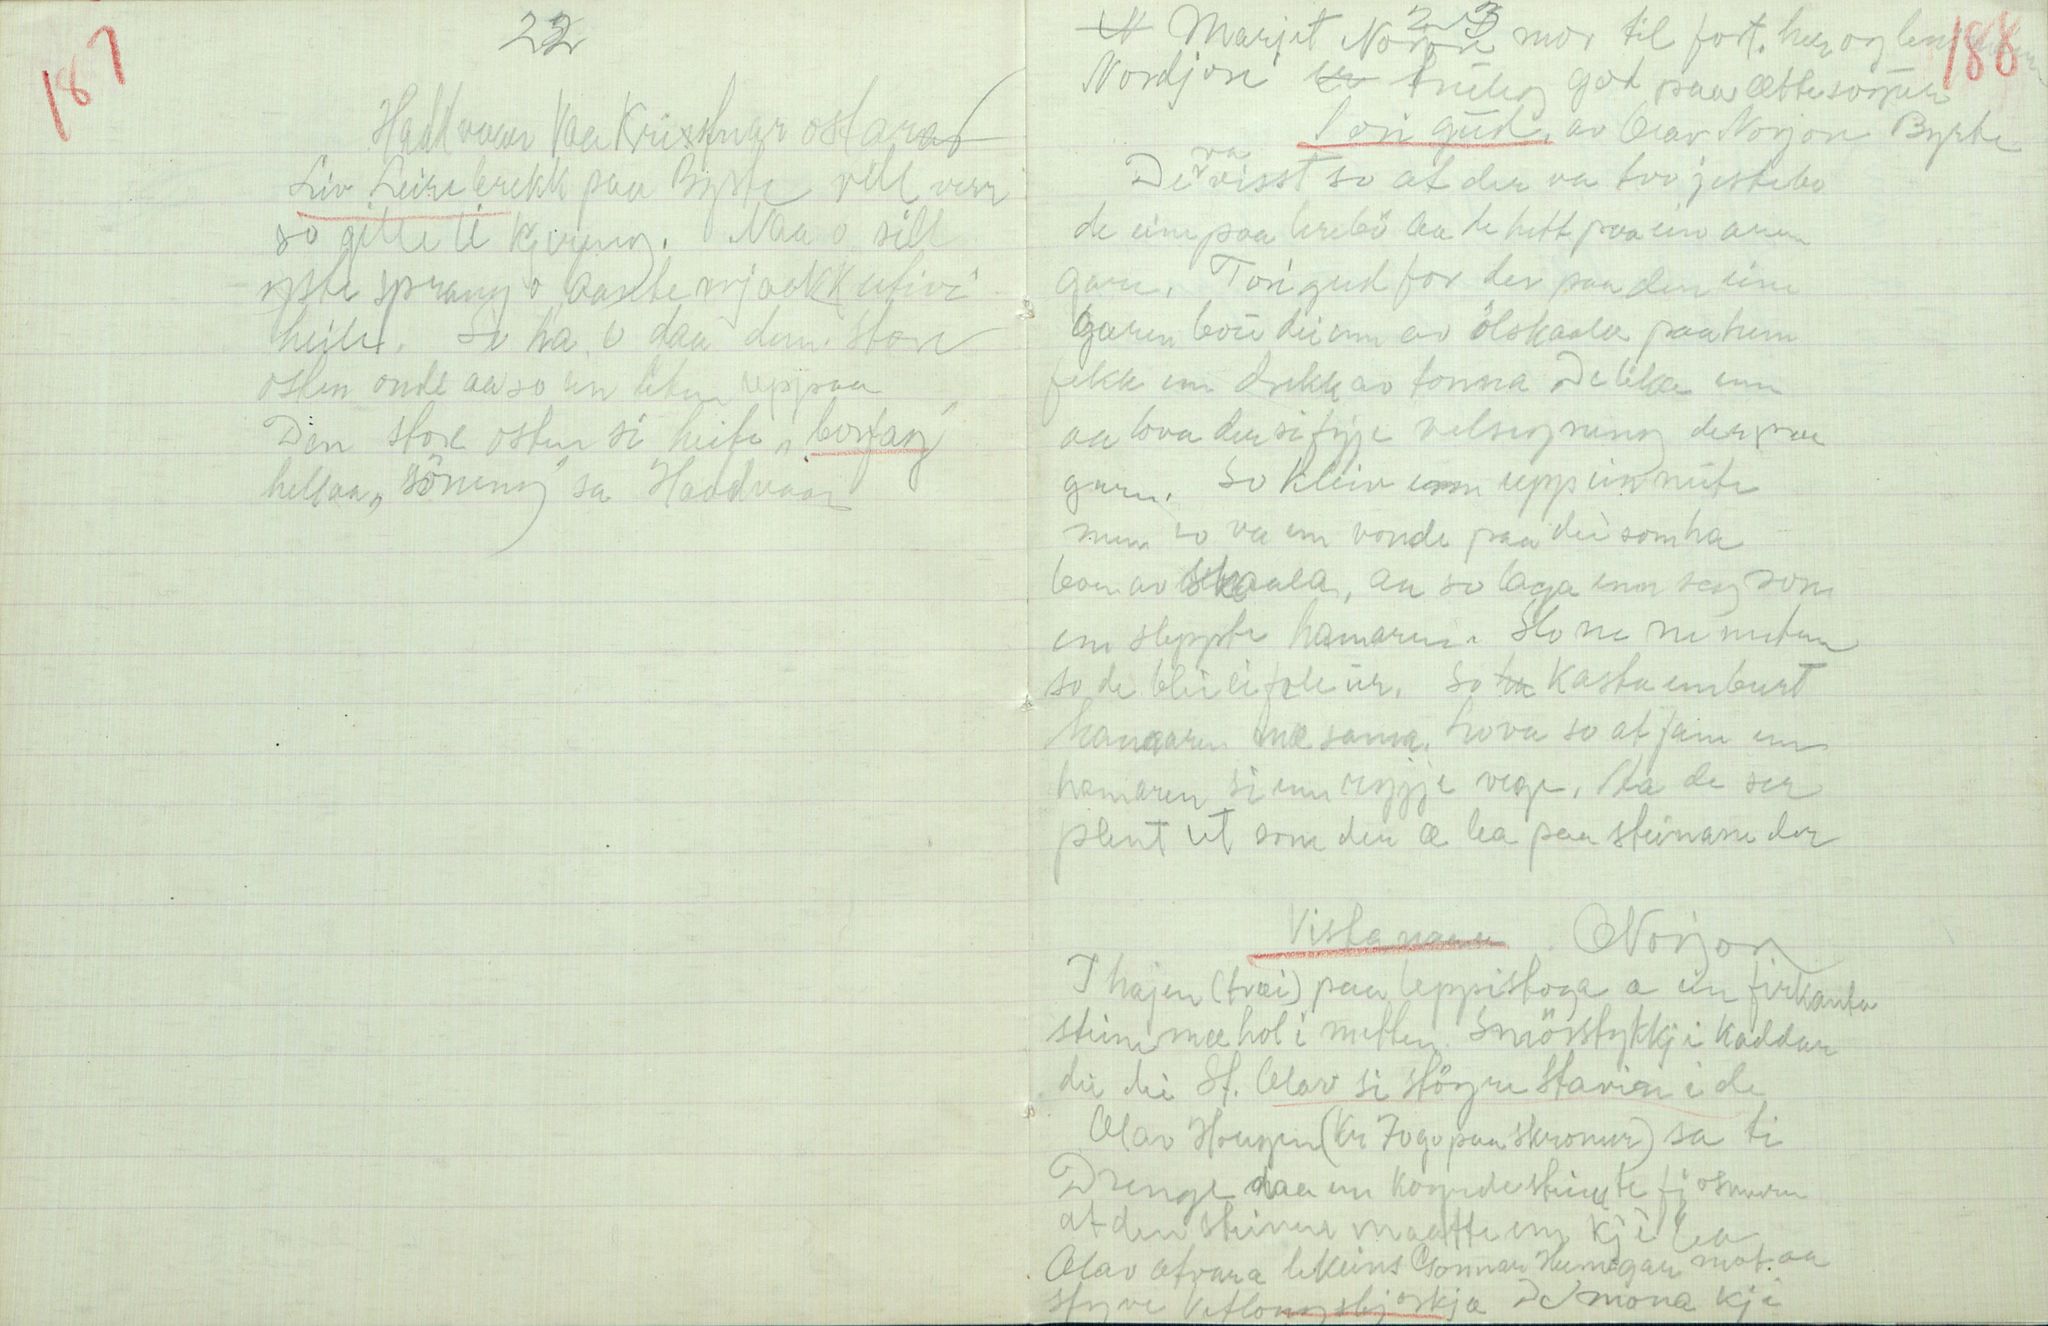 187
22
Haddvaar Vaa Kristnar ostarar
Liv Leirebrekk paa Byrte vill vera
so gitte ti kjering. Naa o sill
yste sprang o aa mjaakk utivi
heile. So ha o daa den store
osten onde aa so ein liten uppaa
Den store osten si heite "borjang"
hellaa "söning" sa Haddvaar
188
23
Marjit Norjore mor til fort. her og
Nordjore truleg god paa ættesogur
Torigud, av Olav Norjore Byrte
De va visst so at der va tvo jestebo
de eine paa brebö aa de hett paa ein aren
garen. Torigud for der paa den eine
garen bau dei em av ölskaala paa hem
fekk em drikk av tonna De lika em
aa lova der si fyje velsegning der paa
garen. So kleiv em upp ein nute
men so va em vonde paa dei som ha
boe av skaala, aa so laga em seg som
em sleppte hamaren. Slo ne ne nuten
so de blei ei fæle ur. So kasta em burt
hamaren me sama, lova so at jame em
hamaren si em ryjje vege. Aa de ser
plent ut som der æ lea paa steinane der
Vistanaae O Norjore
I hajen (træi) paa Uppistoga æ ein firkanta
steine mæ hol i mitten. Smörstykkji kaddar
dei dei St. Olav si stöyre staven i de
Olav Hougen (Kr Fogo paa skronur) sa ti
Drenge daa em köyrde stein te fjosmuren
at den steinen maatte em kji lea
Olav atvara likeins Gonnar Heimigare mot aa
styve Vetlongsbjorkjæ De mona kji